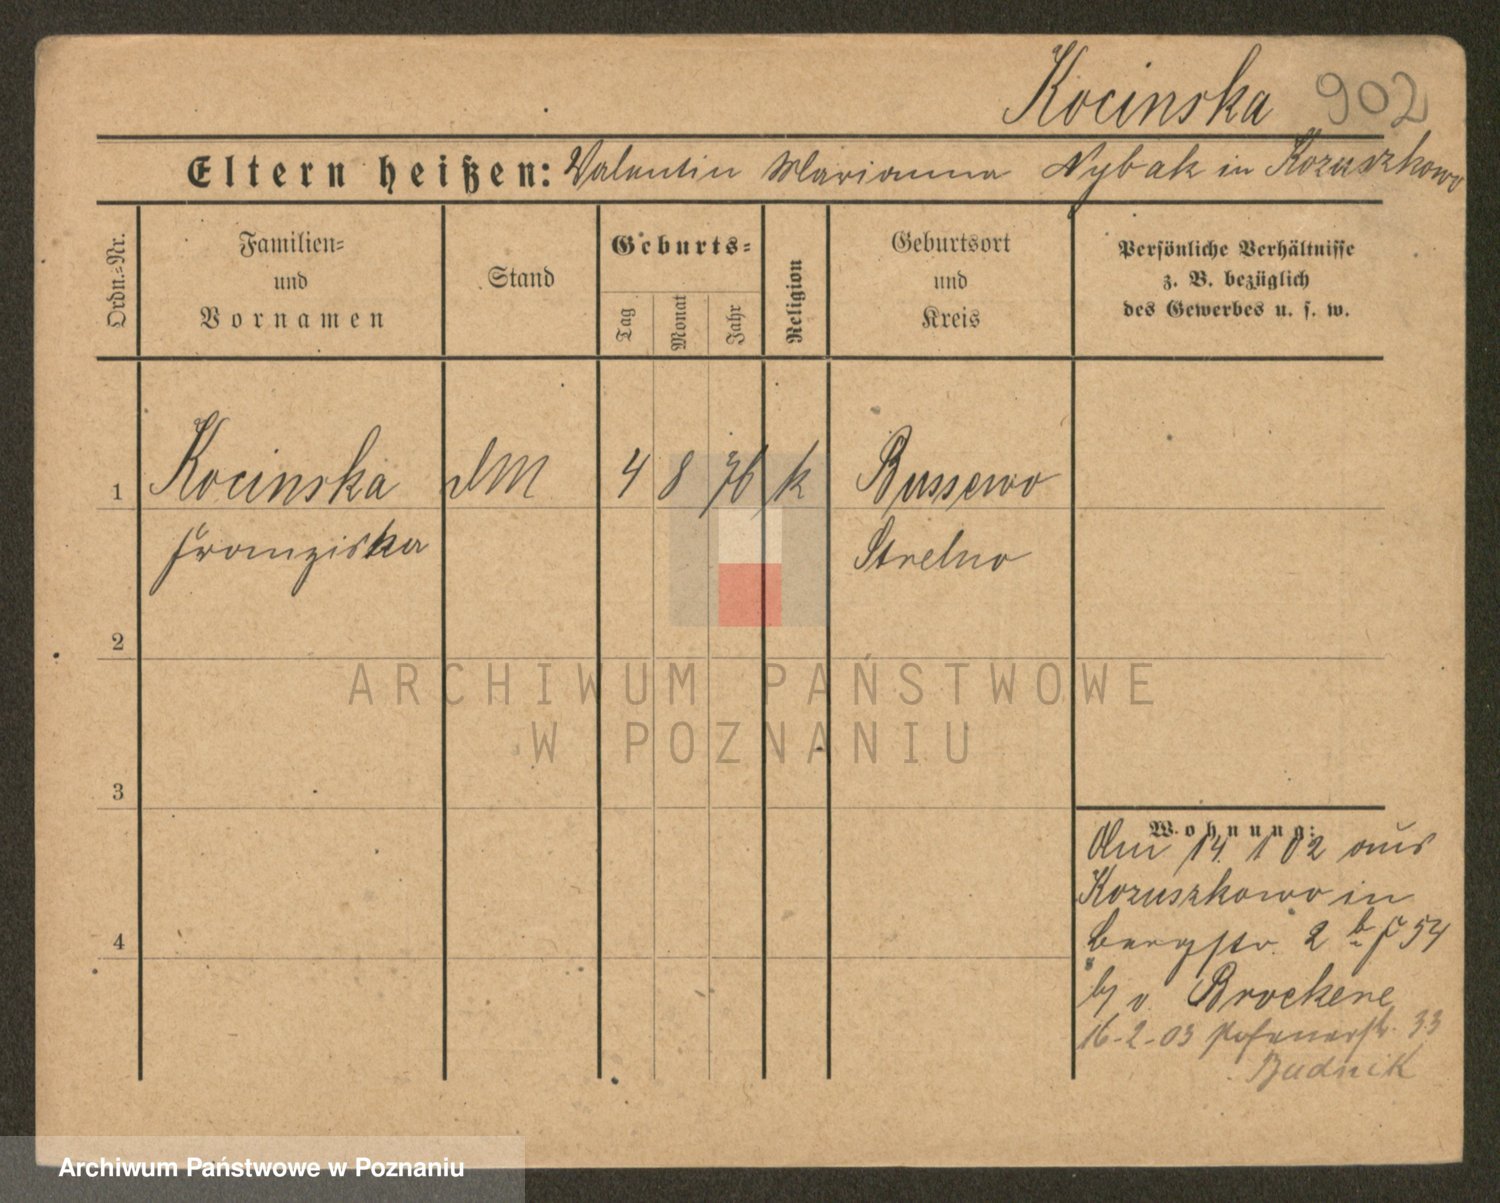 Kocinska 902
Eltern heißen: Valentin Marianna Nybak in Kozuszkowo
Ordn.-Nr.
Familien-
und
Vornamen
Stand
Geburts-
Tag
Monat
Jahr
Religion
Geburtsort
und
Kreis
Persönliche Verhältnisse
z. B. bezüglich
des Gewerbes u. s. w.
1 Kocinska DM 4 8 76 k Bussewo
Franziska Strelno
2
3
4
Wohnung:
14 1 02 aus
Kozuszkowo in
Bergstr. 2 54
v. Brockere
16-2-03 Posenerstr. 33
Budnik
ARCHIWUM PAŃSTWOWE
W POZNANIU
Archiwum Państwowe w Poznaniu